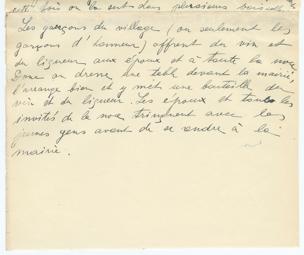 cette fois on va vers dans plusieurs
Les garçons du village (ou seulement les
garçons d'honneur) offrent du vin et
du liqueur aux époux et à toute la noce
on dresse une table devant la mairie,
l'arrange bien et y met une bouteille de
vin et du liqueur. Les époux et tous les
invités de la noce trinquent avec les
jeunes gens avant de se rendre à la
mairie.